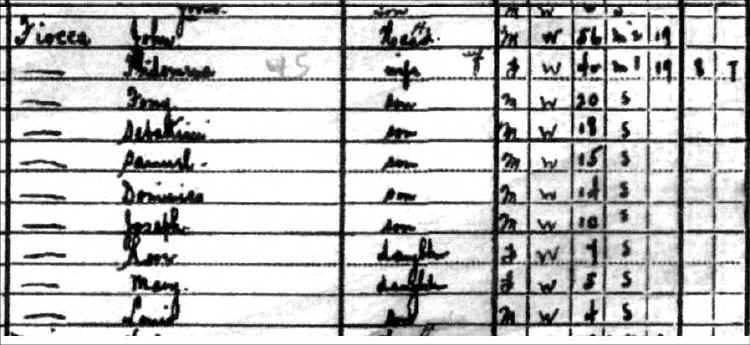 Fiocca John Head M W 56 M2 19
— wife 7 F W 40 M1 19 8 7
— Tony son M W 20 S
— son M W 18 S
— Samuel son M W 15 S
— Dominico son M W 14 S
— Joseph son M W 10 S
— Rose daughter F W 9 S
— Mary daughter F W 5 S
— Louis son M W 4 S